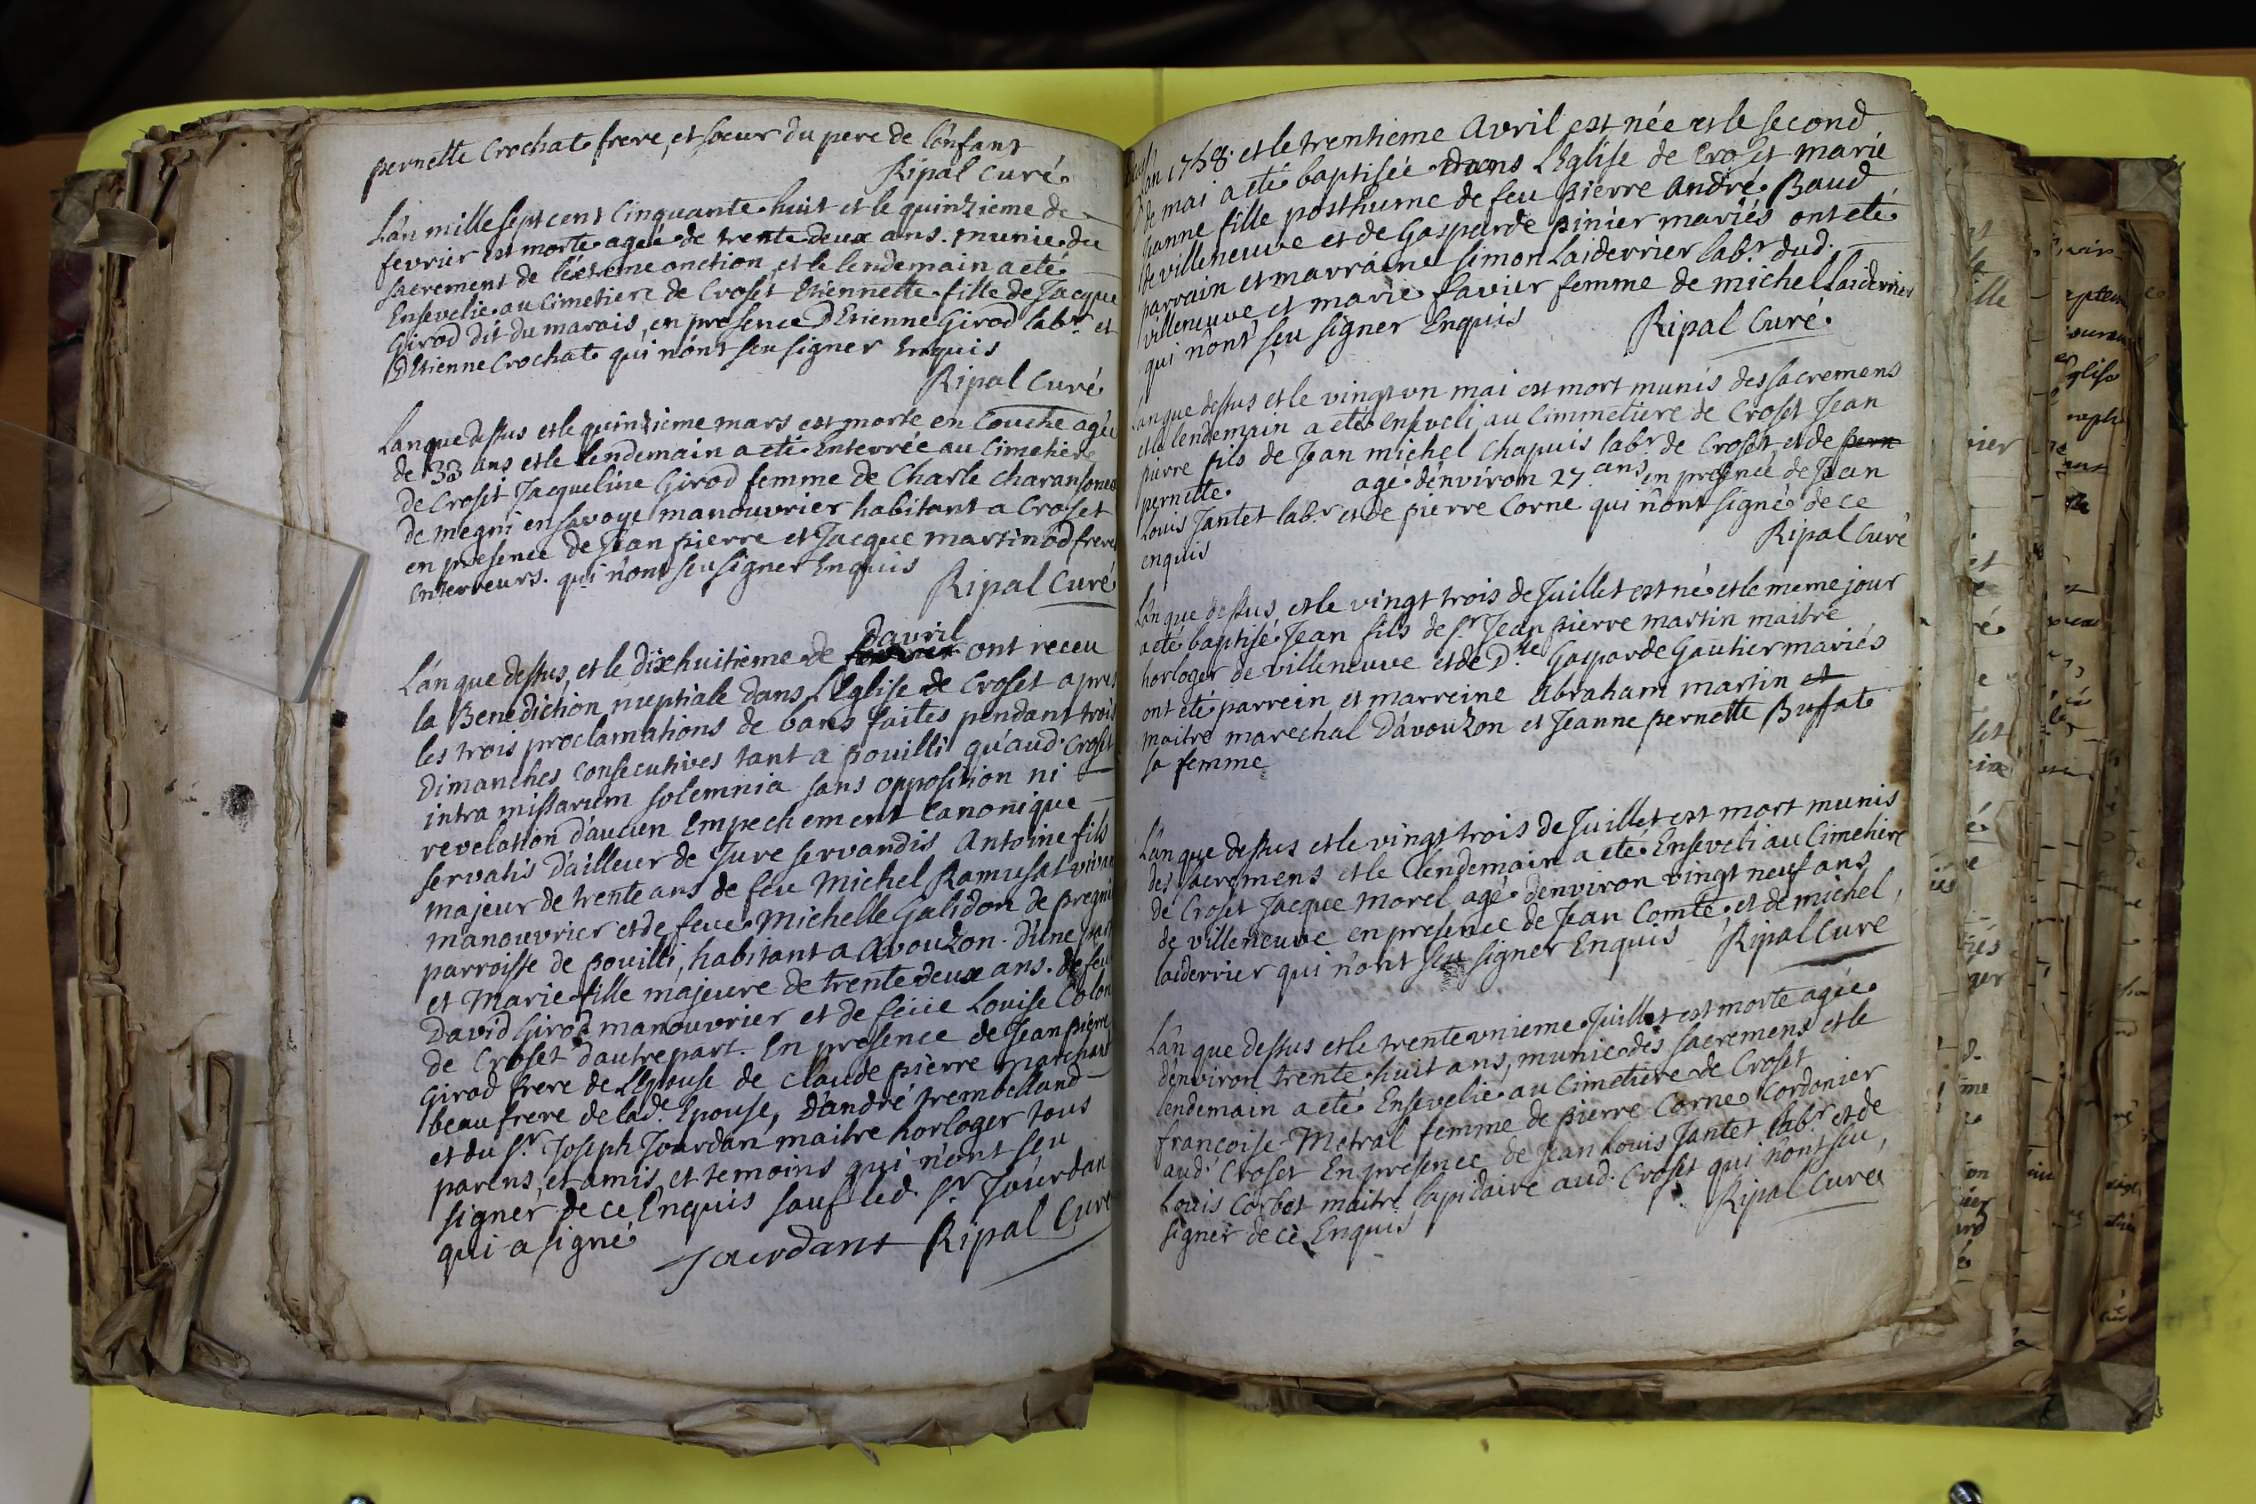 pernette Crochat frere, et soeur du pere de l'enfant
Ripal Curé
L'an mille sept cent cinquante huit et le quinzieme de
fevrier est morte agée de trente deux ans. munie du
sacrement de l'extreme onction, et le lendemain a eté
Ensevelie au Cimetiere de Croset Etiennette fille de Jacque
Girod dit du marais, en presence D'Etienne Girod labr. et
D'Etienne Crochat qui n'ont seu signer Enquis
Ripal Curé
L'an que dessus et le quinzieme mars est morte en Couche agée
de 33 ans et le lendemain a eté Enterrée au Cimetiere
de Croset Jacqueline Girod femme de Charle Charansonet
de megni en savoye manouvrier habitant a Croset
en presence de Jean pierre et Jacque martinod freres
enterreurs. qui n'ont seu signer Enquis
Ripal Curé
davril
L'an que dessus, et le dixhuitieme de fevrier ont receu
la Benediction nuptiale dans L'Eglise de Croset apres
les trois proclamations de bans faites pendant trois
dimanches consecutives tant a pouilli qu'aud. Croset
intra missarum solemnia sans opposition ni
revelation d'aucun Empechement Canonique
servatis d'ailleur de Jure servandis Antoine fils
majeur de trente ans de feu Michel Ramusat vivant
manouvrier et de feue Michelle Galidon de pregni
parroisse de pouilli, habitant a avouzon. D'une part
et Marie fille majeure de trente deux ans. de feu
David Girod manouvrier et de feüe Louise Colon
de Croset d'autre part. En presence de Jean pierre
Girod frere de L'Epouse de claude pierre marchant
beau frere de lade. Epouse, D'andré trembelland
et du Sr. Joseph Jourdan maitre horloger tous
parens, et amis, et temoins qui n'ont seu
signer de ce Enquis sauf led. Sr. Jourdan
qui a signé
Jourdant Ripal Curé
L'an 1758. et le trentieme Avril est née et le second
de mai a eté baptisée dans L'Eglise de Croset marie
Jeanne fille posthume de feu pierre André Baud
de villeneuve et de Gasparde pinier mariés ont eté
parrain et marraine simon Laiderrier labr. dud.
villeneuve et marie favier femme de michel Laiderrier
qui n'ont seu signer Enquis
Ripal Curé.
L'an que dessus et le vingt un mai est mort munis des sacremens
et le lendemain a eté enseveli au Cimmetiere de Croset Jean
pierre fils de Jean michel Chapuis labr. de Croset et de pern
pernette agé d'environ 27 ans en presence de Jean
Louis Jantet labr. et de pierre Corne qui n'ont signé de ce
enquis
Ripal Curé
L'an que dessus et le vingt trois de Juillet est né et le meme jour
a eté baptisé Jean fils de Sr. Jean pierre martin maitre
horloger de villeneuve et de Dlle. Gasparde Gautier mariés
ont eté parrein et marreine Abraham martin et
maitre marechal D'avouzon et Jeanne pernette Buffat
sa femme
L'an que dessus et le vingt trois de Juillet est mort munis
des sacremens et le lendemain a eté Enseveli au Cimetiere
de Croset Jacque Morel agé d'environ vingt neuf ans
de villeneuve en presence de Jean Comte et de michel
laiderrier qui n'ont seu signer Enquis Ripal Cure
L'an que dessus et le trente unieme Juillet est morte agée
d'environ trente huit ans, munie des sacremens et le
lendemain a eté Ensevelie au Cimetiere de Croset
francoise Metral femme de pierre Corne Cordonier
aud. Croset En presence de Jean Louis Jantet labr. et de
Louis Corbet maitre lapidaire aud. Croset qui n'ont seu
signer de ce Enquis
Ripal Curé